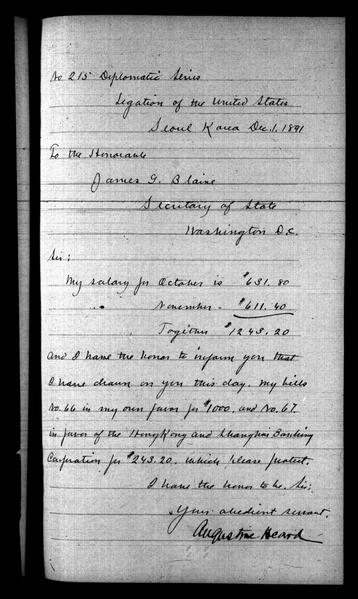 No 215 Diplomatic Series
Legation of the United States
Seoul Korea Dec. 1, 1891
To the Honorable
James G. Blaine
Secretary of State
Washington D.C.
Sir:
My salary for October is $631.80
" November - $611.40
Together $1243.20
and I have the honor to inform you that
I have drawn on you this day. My bills
No. 66 in my own favor for $1000, and No. 67
in favor of the HongKong and Shanghai Banking
Corporation for $243.20. which please protect.
I have the honor to be, Sir:
Your obedient servant.
Augustine Heard